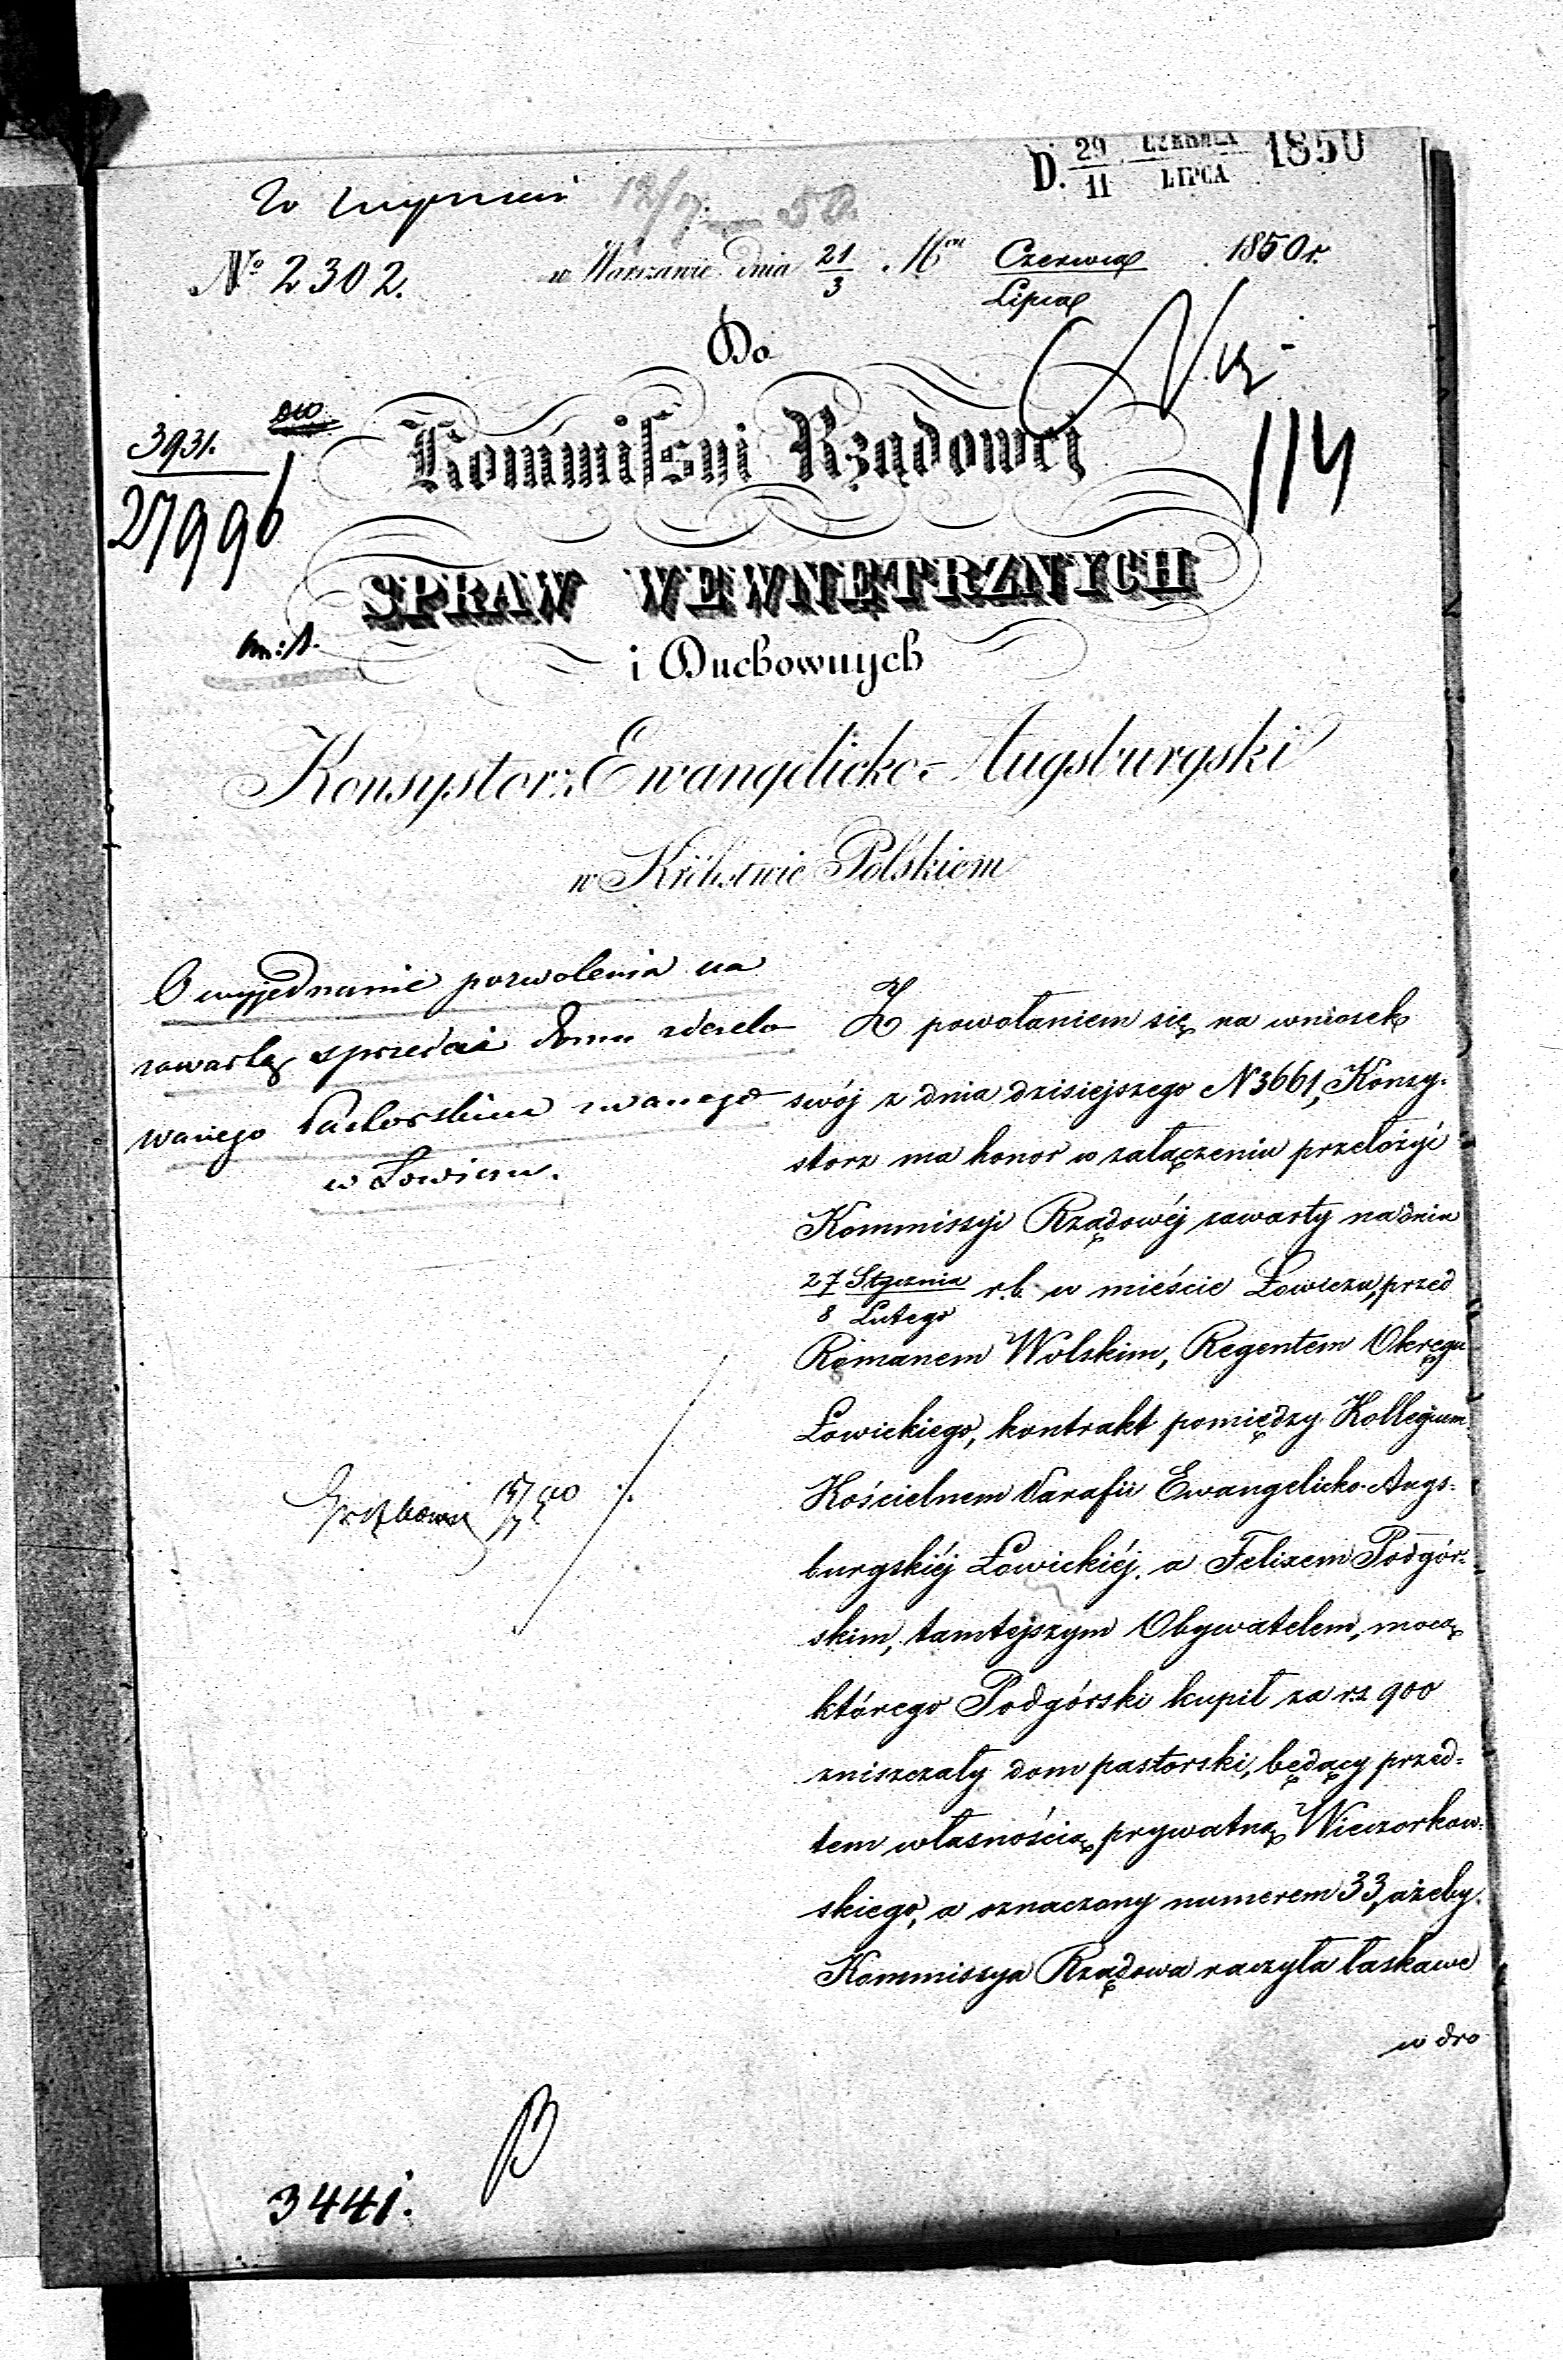 D. 29/11 CZERWCA/LIPCA 1850
12/7 50.
№ 2302.
w Warszawie dnia 21/3 Mca Czerwca/Lipca 1850 r.
Do
3931.
27996
Kommissyi Rządowej
114
SPRAW WEWNĘTRZNYCH
i Duchownych
Konsystorz Ewangelicko-Augsburgski
w Królestwie Polskiem
O wyjednanie pozwolenia na
zawartą sprzedaż domu zdezelo
wanego Pastorskim zwanego
w Łowiczu.
Z powołaniem się na wniosek
swój z dnia dzisiejszego N 3661, Konsy-
storz ma honor w załączeniu przełożyć
Kommissyi Rządowéj zawarty na dniu
27 Stycznia/8 Lutego r.b. w mieście Łowiczu, przed
Romanem Wolskim, Regentem Okręgu
Łowickiego, kontrakt pomiędzy Kollegium
Kościelnem Parafii Ewangelicko-Augs-
burgskiéj Łowickiéj, a Felixem Podgór-
skim, tamtejszym Obywatelem, mocą
którego Podgórski kupił za rs. 900
zniszczały dom pastorski, będący przed-
tem własnością prywatną Wieczorkow-
skiego, a oznaczony numerem 33, ażeby
Kommissya Rządowa raczyła łaskawe
w dro
3441.